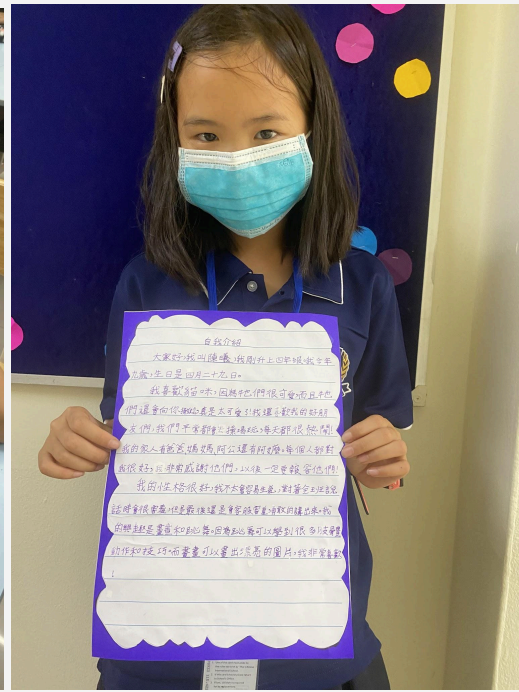 自我介紹
大家好,我叫陳曦,我剛升上四年級,我今年
九歲,生日是四月二十九日。
我喜歡貓咪,因為牠們很可愛,而且牠
們還會向你 真是太可愛了!我還喜歡我的好朋
友們,我們平常都會上操場玩,每天都很熱鬧!
我的家人有爸爸媽媽阿公還有阿嬤。每個人都對
我很好,我非常感謝他們,以後一定要報答他們!
我的性格很好,我不太會容易生氣,對著全班 說
話時會很害羞,但是最後還是會 害羞 勇敢的講出來。我
的興趣是畫畫和跳舞。因為跳舞可以學到很多
動作和技巧。而畫畫可以畫出漂亮的圖片,我非常喜歡
!